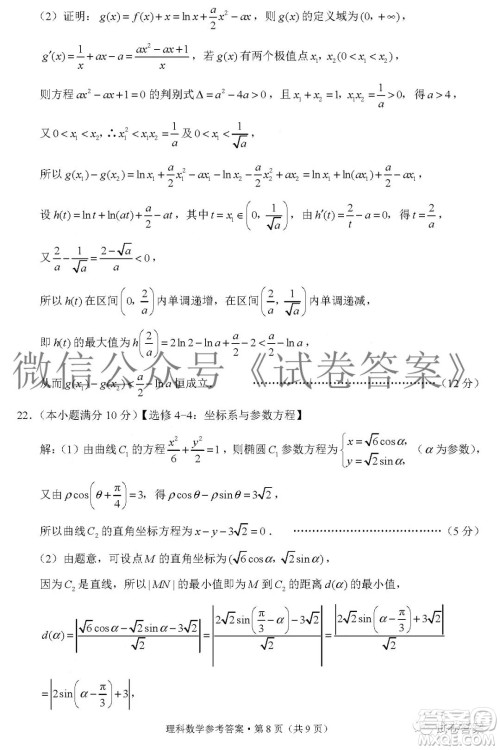 （2）证明：g(x)=f(x)+x=ln x+a/2 x²−ax，则 g(x) 的定义域为(0，+∞)，
g′(x)=1/x+ax−a=(ax²−ax+1)/x，若 g(x) 有两个极值点 x₁，x₂(0<x₁<x₂)，
则方程 ax²−ax+1=0 的判别式 Δ=a²−4a>0，且 x₁+x₂=1，x₁x₂=1/a>0，得 a>4，
又 0<x₁<x₂，∴x₁²<x₁x₂=1/a 及 0<x₁<1/√a，
所以 g(x₁)−g(x₂)=ln x₁+a/2 x₁²−ax₁−ln x₂−a/2 x₂²+ax₂=ln x₁+ln(ax₁)+a/2−ax₁，
设 h(t)=ln t+ln(at)+a/2−at，其中 t=x₁∈(0，1/√a)，由 h′(t)=2/t−a=0，得 t=2/a，
又 2/a−1/√a=(2−√a)/a<0，
所以 h(t) 在区间(0，2/a)内单调递增，在区间(2/a，1/√a)内单调递减，
即 h(t) 的最大值为 h(2/a)=2ln2−ln a+a/2−2<a/2−ln a，
从而 g(x₁)−g(x₂)<a/2−ln a 恒成立. ……………………（12 分）
微信公众号《试卷答案》
22.（本小题满分 10 分）【选修 4−4：坐标系与参数方程】
解：（1）由曲线 C₁ 的方程 x²/6+y²/2=1，则椭圆 C₁ 参数方程为{x=√6cosα，y=√2sinα}（α 为参数），
又由 ρcos(θ+π/4)=3，得 ρcosθ−ρsinθ=3√2，
所以曲线 C₂ 的直角坐标方程为 x−y−3√2=0. ……………………（5 分）
（2）由题意，可设点 M 的直角坐标为(√6cosα，√2sinα)，
因为 C₂ 是直线，所以|MN|的最小值即为 M 到 C₂ 的距离 d(α) 的最小值，
d(α)=|(√6cosα−√2sinα−3√2)/√2|=|(2√2sin(π/3−α)−3√2)/√2|=|(2√2sin(α−π/3)+3√2)/√2|
=|2sin(α−π/3)+3|，
理科数学参考答案·第 8 页（共 9 页）
试卷答案